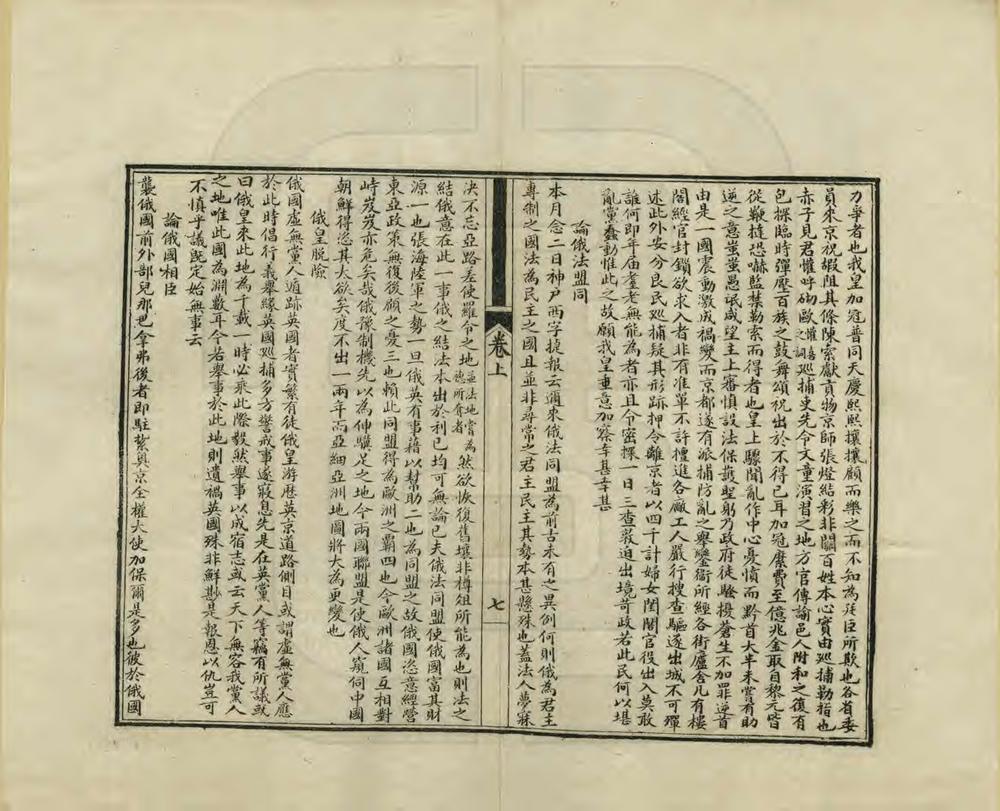 力爭者也我皇加冠普同天慶熙熙攘攘顧而樂之而不知為廷臣所欺也各省委
員來京祝嘏阻其條陳索獻貢物京師張燈結彩非關百姓本心實由巡捕勒指也
赤子見君懽呼砌歐懽喜之詞巡捕吏先令文童演習之地方官傳諭邑人附和之復有
包探臨時彈壓百族之鼓舞頌祝出於不得已耳加冠縻費至億兆金取自黎元皆
從鞭撻恐嚇監禁勒索而得者也皇上驟聞亂作中心憂憤而黔首大半未嘗有助
逆之意蚩蚩愚氓咸望主上審慎設法保護聖躬乃政府徒騷擾蒼生不加罪逆首
由是一國震動激成禍變而京都遂有派捕防亂之舉鑾衛所經各街廬舍凡有樓
閣經官封鎖欲求入者非有准單不許擅進各廠工人嚴行搜查驅逐出城不可殫
述此外安分良民巡捕疑其形跡押令離京者以四千計婦女閨闥官役出入莫敢
誰何即年屆耄老無能為者亦且令密探一日三查嚴迫出境苛政若此民何以堪
亂黨蠢動惟此之故願我皇重意加察幸甚幸甚
論俄法盟同
本月念二日神戶西字捷報云邇來俄法同盟為前古未有之異例何則俄為君主
專制之國法為民主之國且並非尋常之君主民主其勢本甚懸殊也蓋法人夢寐
卷上
七
決不忘亞路差使羅令之地並法地嘗為德所奪者然欲恢復舊壤非樽俎所能為也則法之
結俄意在此一事俄之結法本出於利已均可無論已夫俄法同盟使俄國富其財
源一也張海陸軍之勢一旦俄英有事藉以幫助二也為同盟之故俄國恣意經營
東亞政策無復後顧之憂三也賴此同盟得為歐洲之霸四也今歐洲諸國互相對
峙岌岌亦危矣哉俄豫制機先以為伸驥足之地今兩國聯盟是使俄人窺伺中國
朝鮮得恣其大欲矣度不出一兩年而亞細亞洲地圖將大為更變也
俄皇脫險
俄國虛無黨人遁跡英國者實繁有徒俄皇游歷英京道路側目或謂虛無黨人應
於此時倡行義舉緣英國巡捕多方警戒事遂寢息先是在英黨人等竊有所議或
曰俄皇來此地為千載一時必乘此際毅然舉事以成宿志或云天下無容我黨人
之地唯此國為淵藪耳今若舉事於此地則遺禍英國殊非鮮尠是報恩以仇豈可
不慎乎議既定始無事云
論俄國相臣
襲俄國前外部兒那巴拿弗後者即駐紮奧京全權大使加保爾是多也彼於俄國